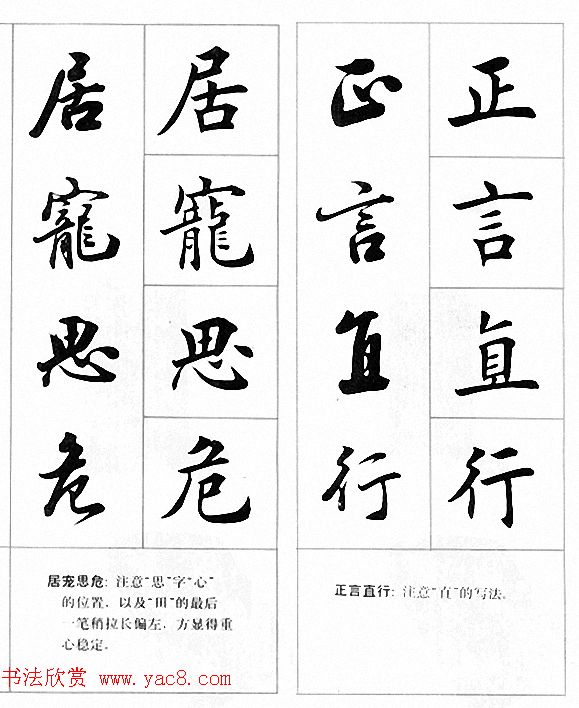 正言直行
正言直行
正言直行：注意“直”的写法。
居寵思危
居寵思危
居宠思危：注意“思”字“心”
的位置，以及“田”的最后
一笔稍拉长偏左，方显得重
心稳定。
书法欣赏 www.yac8.com